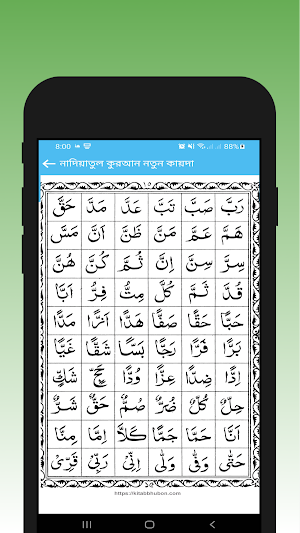 8:00 88%
নাদিয়াতুল কুরআন নতুন কায়দা
رَبَّ صَبَّ تَبَّ عَدَّ مَدَّ حَقَّ
هَمَّ عَمَّ مَنَّ ظَنَّ اَنَّ مَسَّ
سِرَّ سِنَّ اِنَّ ثُمَّ كُنَّ هُنَّ
قُدَّ ثَمَّ كُلَّ مِتُّ فِرُّ اَبًّا
حَبًّا حَقًّا صَفًّا هَدًّا اَزًّا مَدًّا
بَرًّا فَرًّا رَجًّا بَسًّا شَقًّا غَبًّا
اِدًّا ضِدًّا عِزًّا وُدًّا حَجٌّ شَكٍّ
حِلٌّ كُلٌّ ضُرٌّ صُمٌّ حَقٌّ شَرٌّ
اَنَّا حَمَّا جَمًّا كَلَّا اِمَّا مِنَّا
حَتّٰى وَفّٰى وَلّٰى اِنِّىْ رَبِّىْ قَرِّىْ
https://kitabbhubon.com